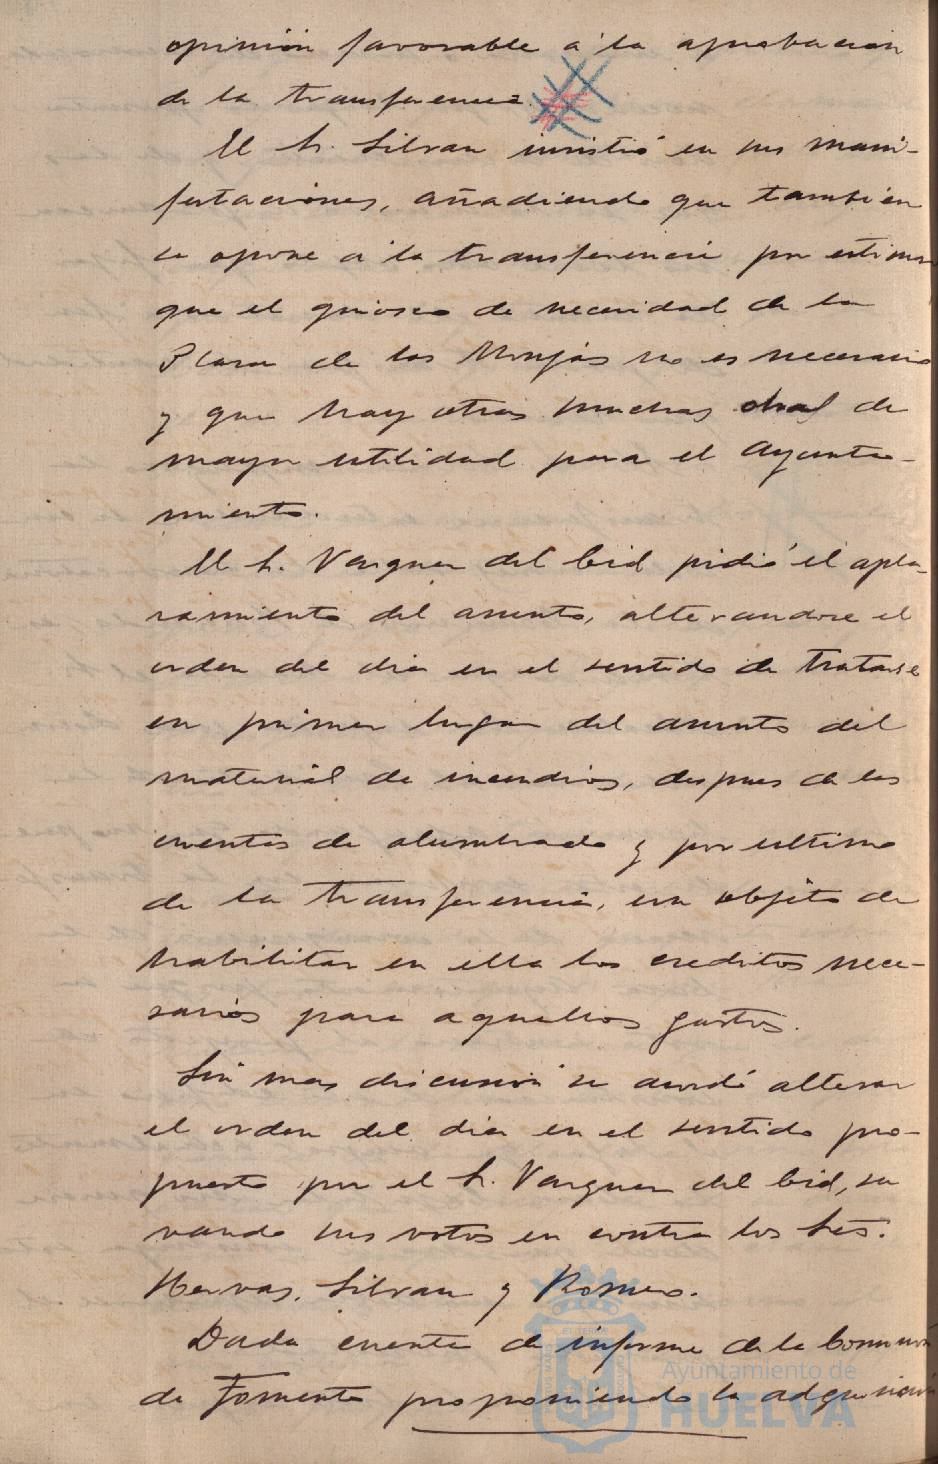 opinión favorable á la aprobacion
de la transferencia.
El Sr. Silvan insistió en sus mani-
festaciones, añadiendo que tambien
se opone á la transferencia por estimar
que el quiosco de necesidad de la
Plaza de las Monjas no es necesario
y que hay otras muchas obras de
mayor utilidad para el Ayunta-
miento.
El Sr. Vazquez del Cid pidió el apla-
zamiento del asunto, alterandose el
orden del dia en el sentido de tratarse
en primer lugar del asunto del
material de incendios, despues de las
cuentas de alumbrado y por ultimo
de la transferencia, con objeto de
habilitar en ella los creditos nece-
sarios para aquellos gastos.
Sin mas discusion se acordó alterar
el orden del dia en el sentido pro-
puesto por el Sr. Vazquez del Cid, sal
vando sus votos en contra los Sres.
Hervas, Silvan y Romero.
Dada cuenta de informe de la Comision
de Fomento proponiendo la adquisicion
Ayuntamiento de
HUELVA